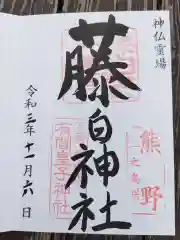 神仏霊場
藤白神社
令和三年十一月六日
熊野
有間皇子神社